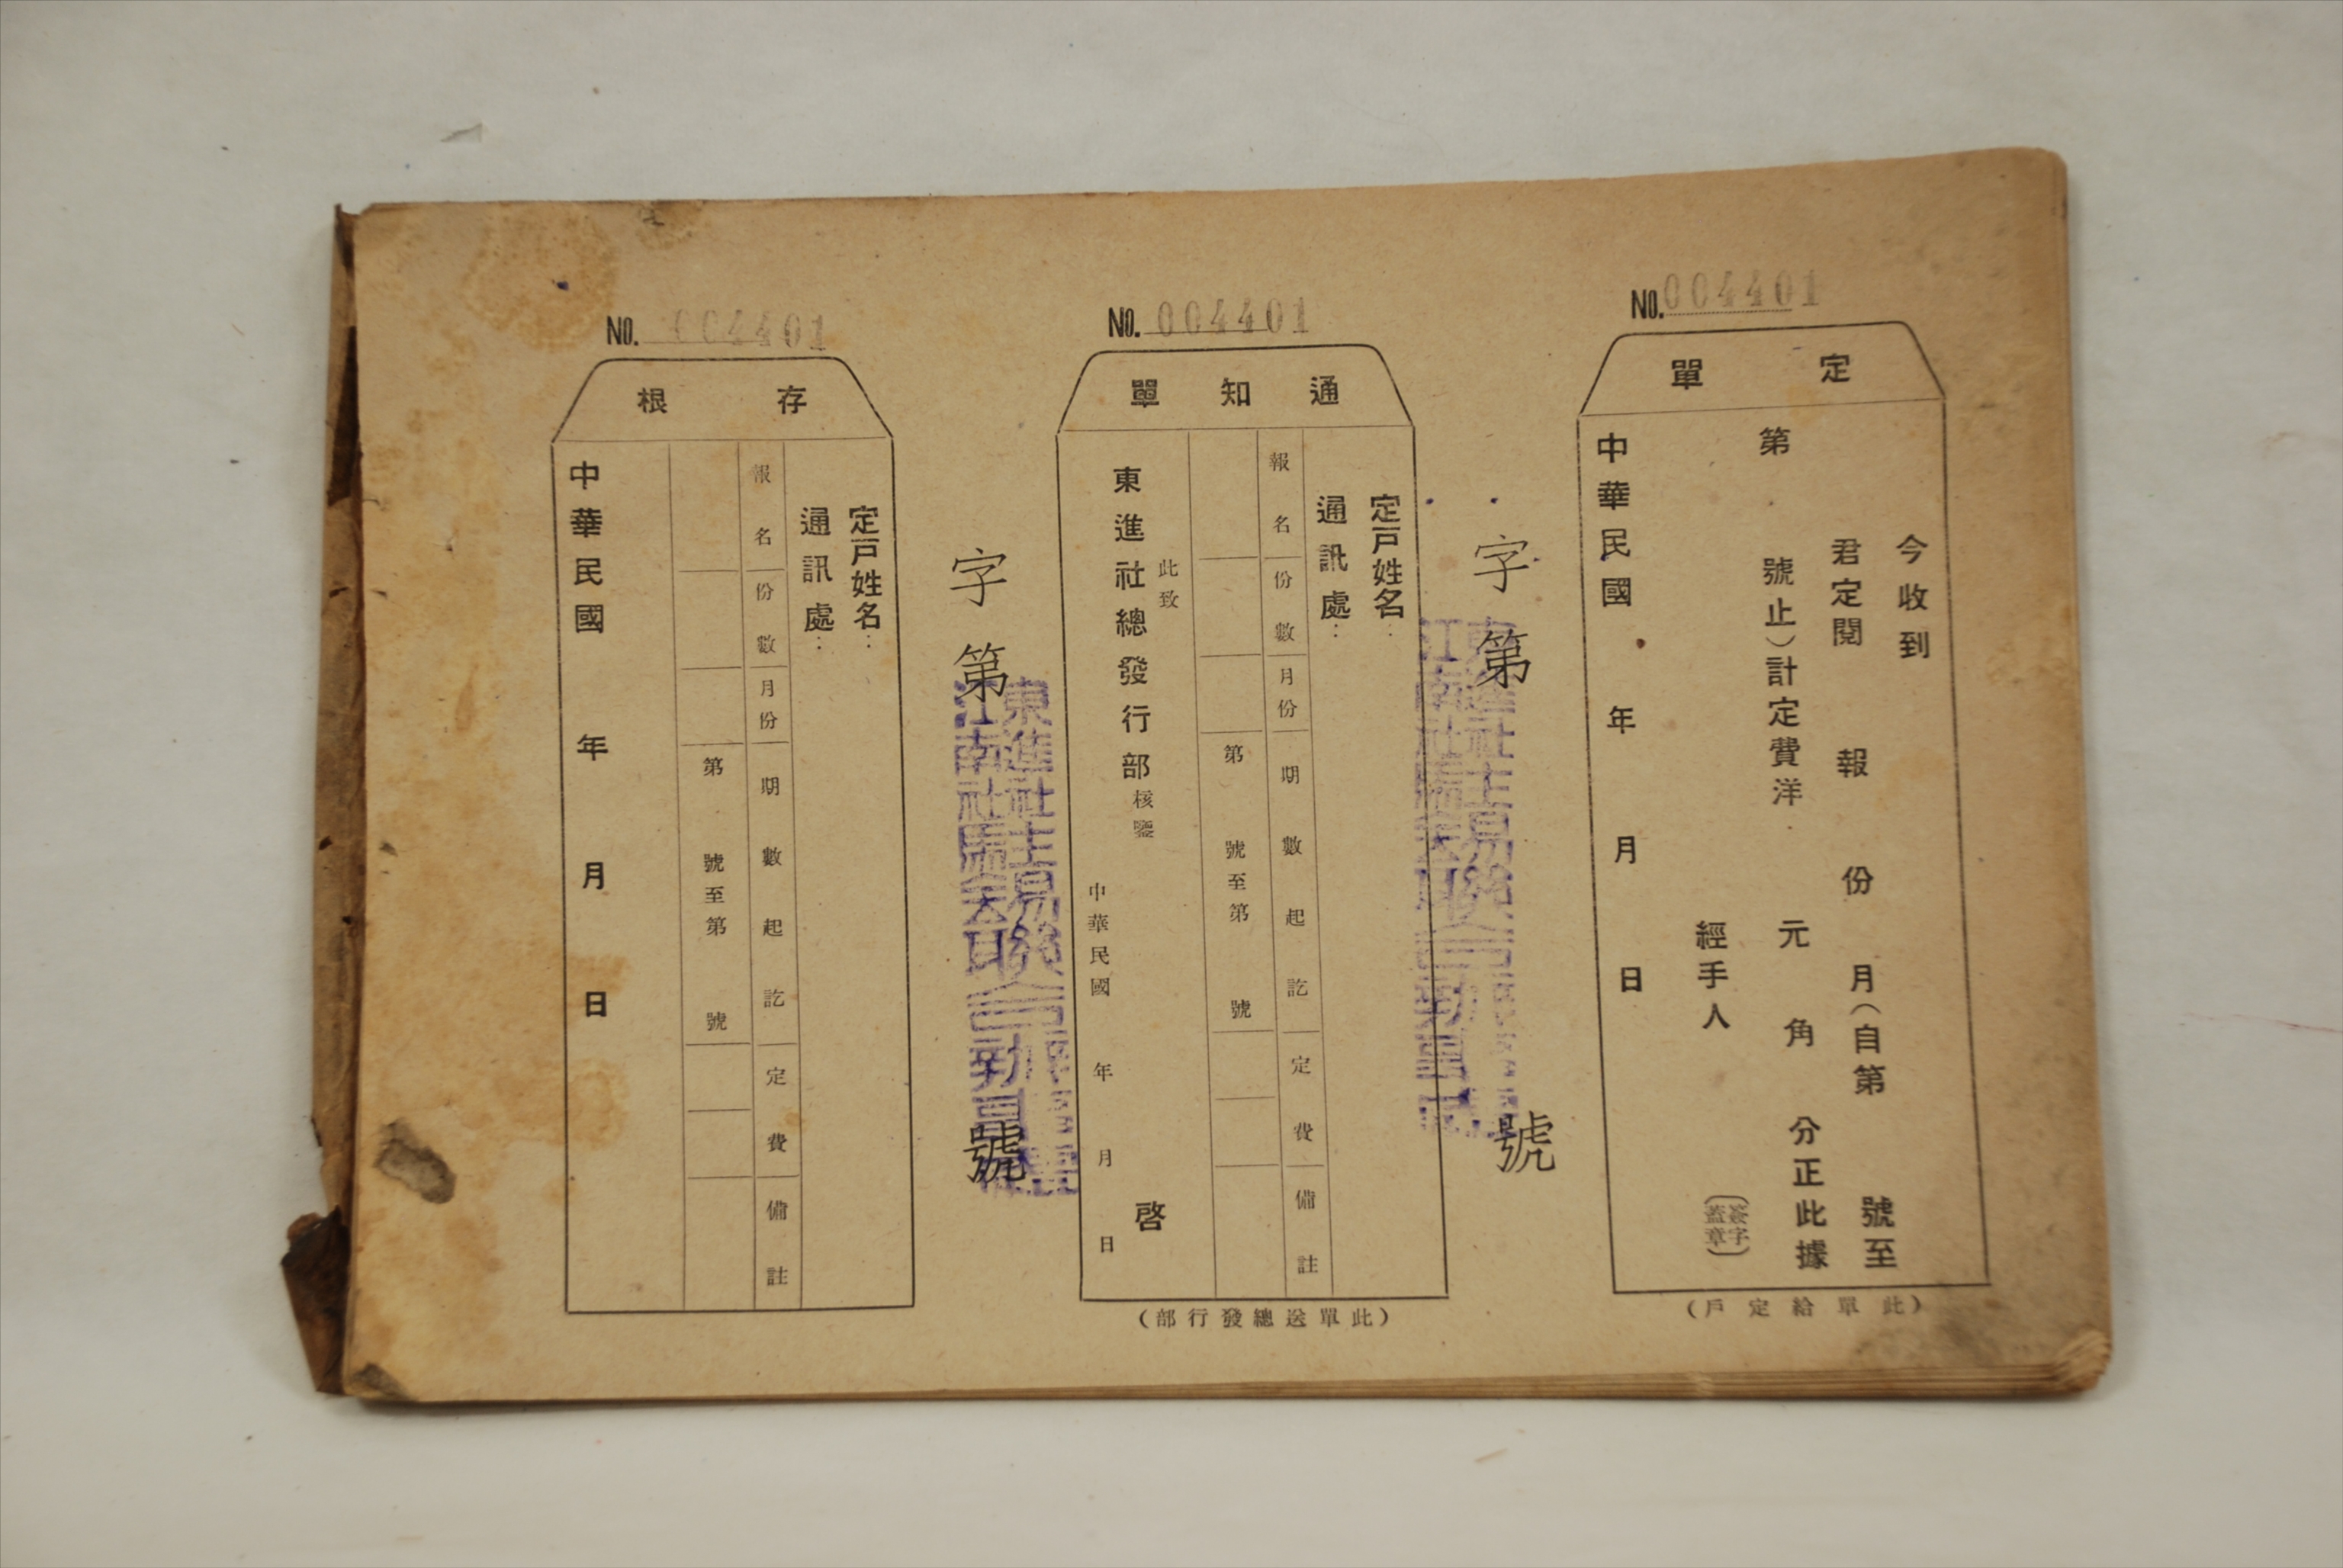 NO. 004401
定單
今收到
君定閱 報 份 月(自第 號至
第 號止)計定費洋 元 角 分正此據
經手人
簽字
蓋章
中華民國 年 月 日
(此單給定戶)
字第 號
NO. 004401
通知單
定戶姓名:
通訊處:
報名 份數 月份 期數起訖 定費 備註
第 號至第 號
此致
東進社總發行部核鑒
啓
中華民國 年 月 日
(此單送總發行部)
字第 號
東進社
江南社
NO. 004401
存根
定戶姓名:
通訊處:
報名 份數 月份 期數起訖 定費 備註
第 號至第 號
中華民國 年 月 日